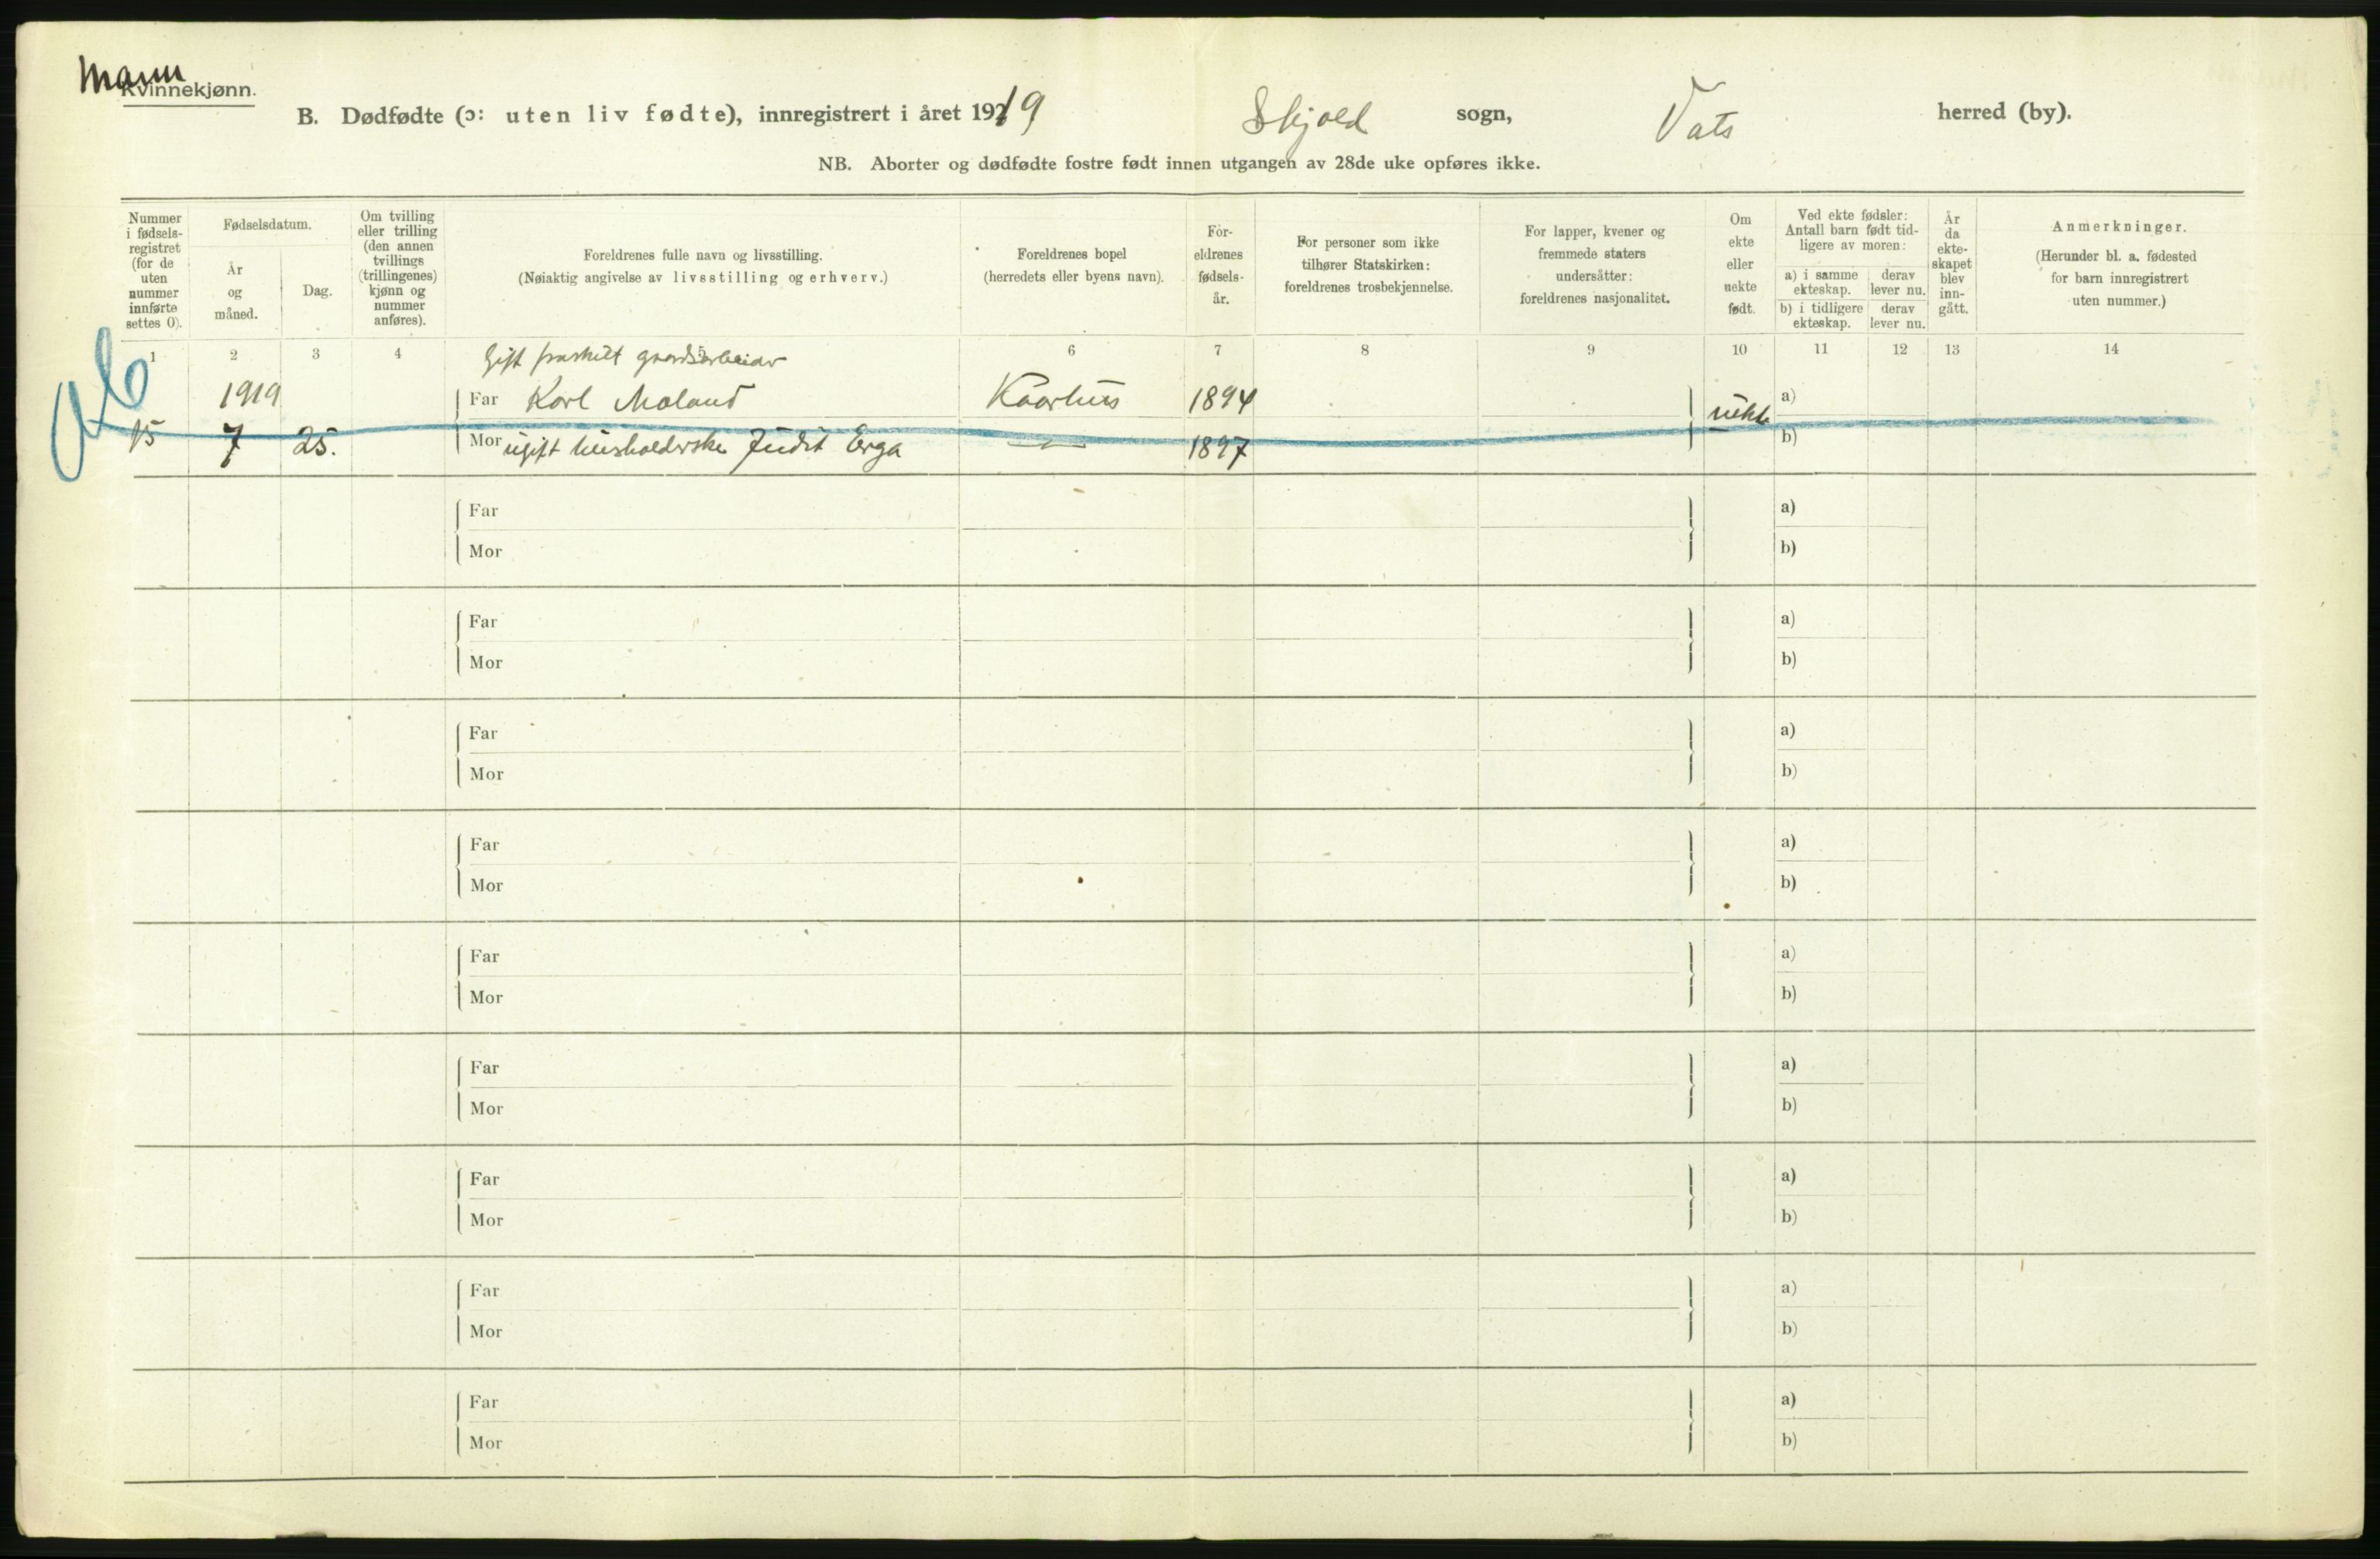 Mann
Kvinnekjønn.
B. Dødfødte (ɔ: uten liv fødte), innregistrert i året 1919 Skjold sogn, Vats herred (by).
NB. Aborter og dødfødte fostre født innen utgangen av 28de uke opføres ikke.
Nummer i fødsels-registret (for de uten nummer innførte settes 0).
Fødselsdatum.
År og måned.
Dag.
Om tvilling eller trilling (den annen tvillings (trillingenes) kjønn og nummer anføres).
Foreldrenes fulle navn og livsstilling.
(Nøiaktig angivelse av livsstilling og erhverv.)
Foreldrenes bopel
(herredets eller byens navn).
For-eldrenes fødsels-år.
For personer som ikke tilhører Statskirken: foreldrenes trosbekjennelse.
For lapper, kvener og fremmede staters undersåtter: foreldrenes nasjonalitet.
Om ekte eller uekte født.
Ved ekte fødsler: Antall barn født tid-ligere av moren:
a) i samme ekteskap. derav lever nu.
b) i tidligere ekteskap. derav lever nu.
År da ekte-skapet blev inn-gått.
Anmerkninger.
(Herunder bl. a. fødested for barn innregistrert uten nummer.)
1 2 3 4 6 7 8 9 10 11 12 13 14
Gift fraskilt gaardsarbeider
1919 Far Karl Moland Kaarhus 1894 uekte a)
15 7 25. Mor ugift husholderske Judit Erga 1897 b)
Far a)
Mor b)
Far a)
Mor b)
Far a)
Mor b)
Far a)
Mor b)
Far a)
Mor b)
Far a)
Mor b)
Far a)
Mor b)
Far a)
Mor b)
Far a)
Mor b)